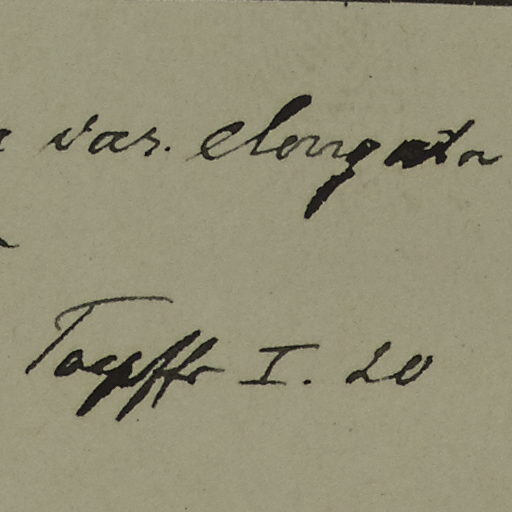 a var. elongata
Toepffr I. 20